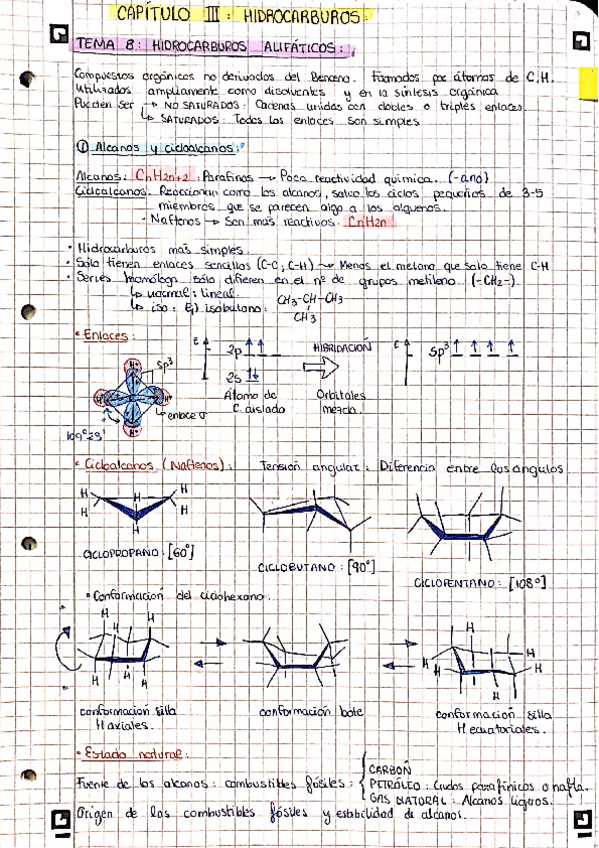 CAPÍTULO III: HIDROCARBUROS.
TEMA 8: HIDROCARBUROS ALIFÁTICOS:
Compuestos orgánicos no derivados del Benceno. Formados por átomos de C,H.
Utilizados ampliamente como disolventes y en la síntesis orgánica
Pueden ser → NO SATURADOS: Cadenas unidas con dobles o triples enlaces
↳ SATURADOS: Todos los enlaces son simples
① Alcanos y cicloalcanos:
Alcanos: CnH2n+2: Parafinas → Poca reactividad química. (-ano)
Cicloalcanos: Reaccionan como los alcanos, salvo los ciclos pequeños de 3-5
miembros que se parecen algo a los alquenos.
- Naftenos → Son más reactivos. CnH2n
· Hidrocarburos más simples.
· Sólo tienen enlaces sencillos (C-C, C-H) → Menos el metano que solo tiene C-H
· Series homóloga sólo difieren en el nº de grupos metileno (-CH2-).
↳ normal: lineal.
↳ iso: Ej) isobutano: CH3-CH-CH3
CH3
· Enlaces:
E 2p ↑ ↑ HIBRIDACIÓN E sp³ ↑ ↑ ↑ ↑
2s ↑↓
sp³
H+ H+ H+ H+
enlace σ
109º29'
Átomo de C aislado
Orbitales mezcla.
· Cicloalcanos (Naftenos): Tensión angular: Diferencia entre los ángulos
H H H H H H
CICLOPROPANO: [60º]
CICLOBUTANO: [90º]
CICLOPENTANO: [108º]
· Conformación del ciclohexano.
H H H H H H
H H H H H H
conformación silla
H axiales.
conformación bote
conformación silla
H ecuatoriales.
· Estado natural:
Fuente de los alcanos: combustibles fósiles:
CARBÓN
PETRÓLEO: Crudos parafínicos o nafta.
GAS NATURAL: Alcanos ligeros.
Origen de los combustibles fósiles y estabilidad de alcanos.